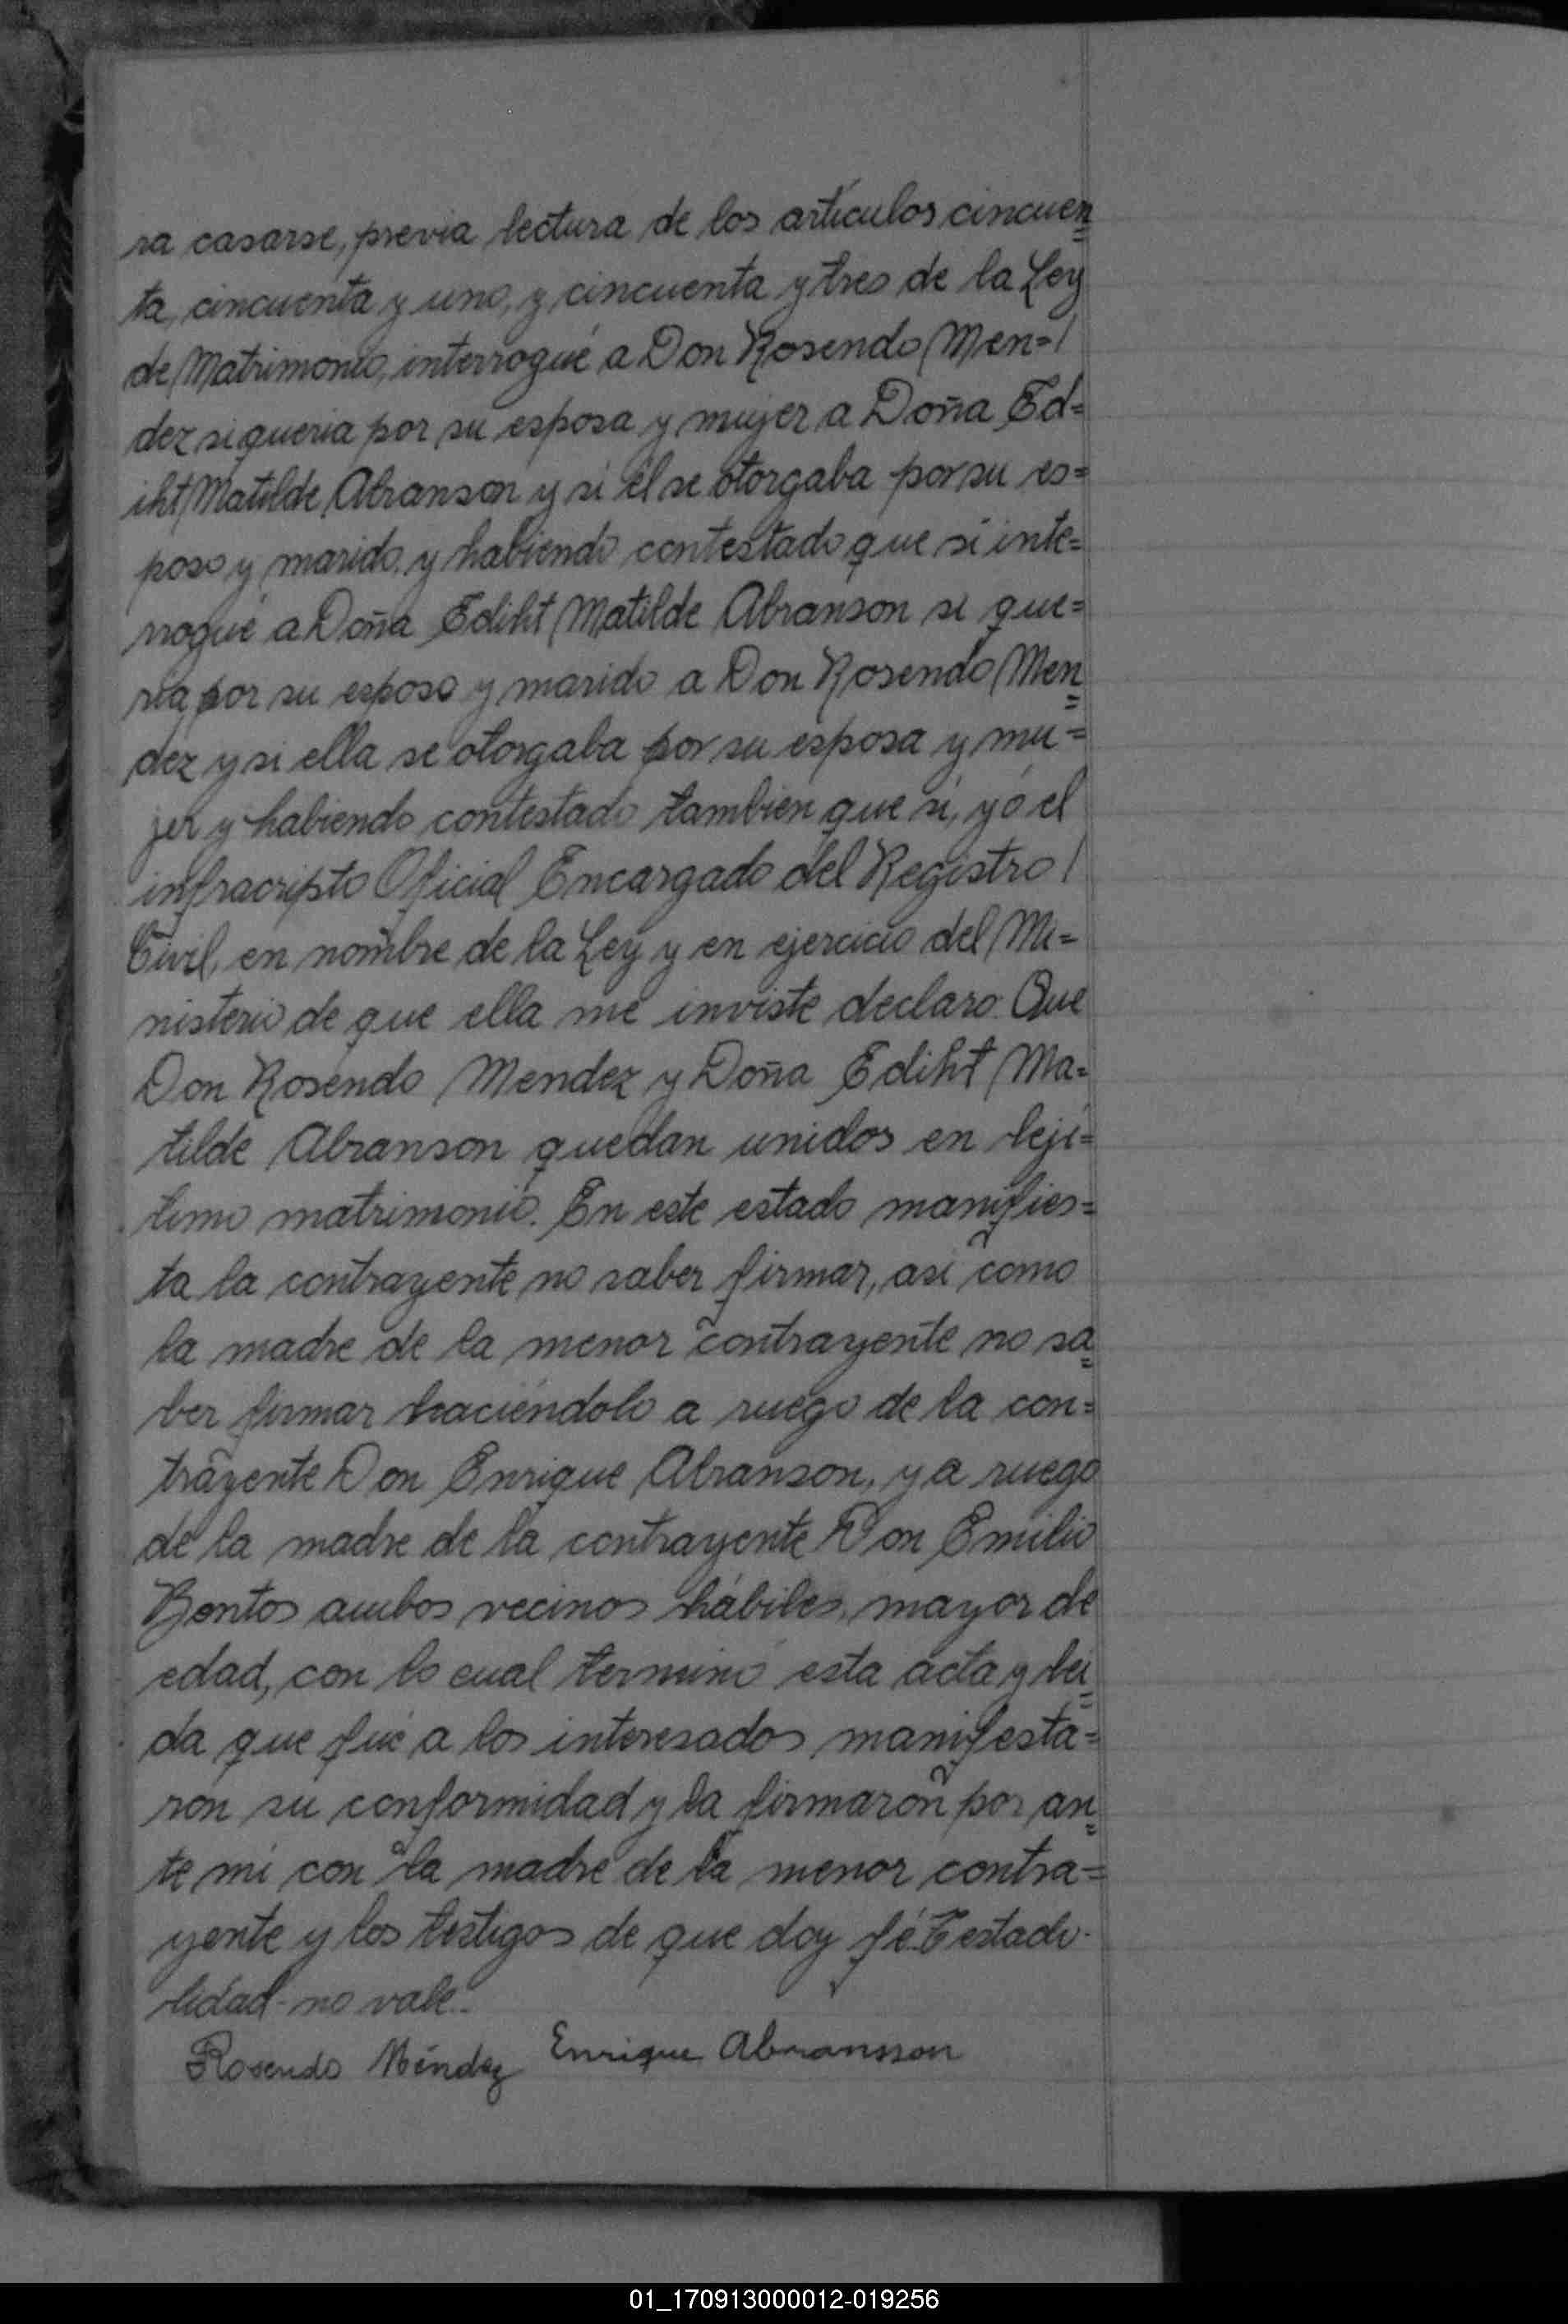 ra casarse, previa lectura de los artículos cincuen=
ta, cincuenta y uno, y cincuenta y tres de la Ley
de Matrimonio, interrogué a Don Rosendo Men=/
dez si queria por su esposa y mujer a Doña Ed=
iht Matilde Abranson y si él se otorgaba por su es=
poso y marido, y habiendo contestado que sí inte=
rrogué a Doña Ediht Matilde Abranson si que=
ria por su esposo y marido a Don Rosendo Men=
dez y si ella se otorgaba por su esposa y mu=
jer y habiendo contestado tambien que sí, yó el
infracripto Oficial Encargado del Registro/
Civil, en nombre de la Ley y en ejercicio del Mi=
nisterio de que ella me inviste declaro: Que
Don Rosendo Mendez y Doña Ediht Ma=
tilde Abranson quedan unidos en leji=
timo matrimonio. En este estado manifies=
ta la contrayente no saber firmar, así como
la madre de la menor contrayente no sa=
ber firmar haciéndolo a ruego de la con=
trayente Don Enrique Abranson, y a ruego
de la madre de la contrayente Don Emilio
Bentos ambos vecinos hábiles, mayor de
edad, con lo cual terminó esta acta y lei=
da que fué a los interesados manifesta=
ron su conformidad y la firmaron por an=
te mí con la madre de la menor contra=
yente y los testigos de que doy fé. Testado-
lidad- no vale.-
Rosendo Méndez Enrique Abransson
01_170913000012-019256